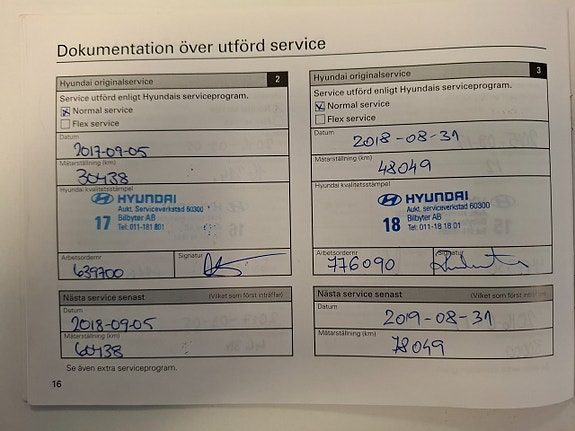 Dokumentation över utförd service
Hyundai originalservice 2
Service utförd enligt Hyundais serviceprogram.
Normal service
Flex service
Datum
2017-09-05
Mätarställning (km)
30438
Hyundai kvalitetsstämpel
HYUNDAI
Aukt. Serviceverkstad 60300
17 Bilbyter AB
Tel: 011-181 801
Arbetsordernr Signatur
639700
Nästa service senast (Vilket som först inträffar)
Datum
2018-09-05
Mätarställning (km)
60438
Se även extra serviceprogram.
16
Hyundai originalservice 3
Service utförd enligt Hyundais serviceprogram.
Normal service
Flex service
Datum
2018-08-31
Mätarställning (km)
48049
Hyundai kvalitetsstämpel
HYUNDAI
Aukt. serviceverkstad 60300
18 Bilbyter AB
Tel: 011-18 18 01
Arbetsordernr Signatur
776090
Nästa service senast (Vilket som först inträffar)
Datum
2019-08-31
Mätarställning (km)
78049